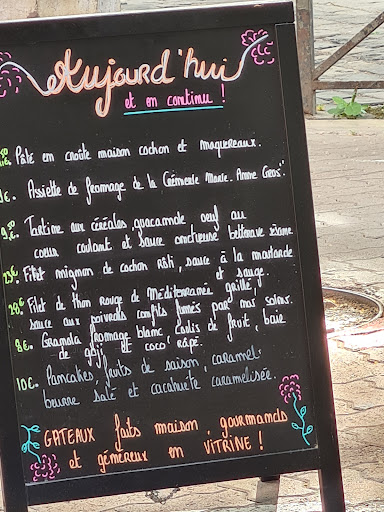 Aujourd'hui
et en continu !
Pâté en croûte maison cochon et maquereaux.
Assiette de fromage de la Crémerie Marie. Anne Gros".
Tartine aux céréales, guacamole oeuf au
coeur coulant et sauce onctueuse betterave sésame
23€. Filet mignon de cochon rôti, sauce à la moutarde
et sauge.
28€. Filet de thon rouge de Méditerranée grillé,
sauce aux poivrons confits fumés par nos soins.
8€. Granola fromage blanc, coulis de fruit, baie
de goji et coco rapé.
10€. Pancakes, fruits de saison, caramel
beurre salé et cacahuète caramelisée.
GATEAUX faits maison, gourmands
et généreux en VITRINE !